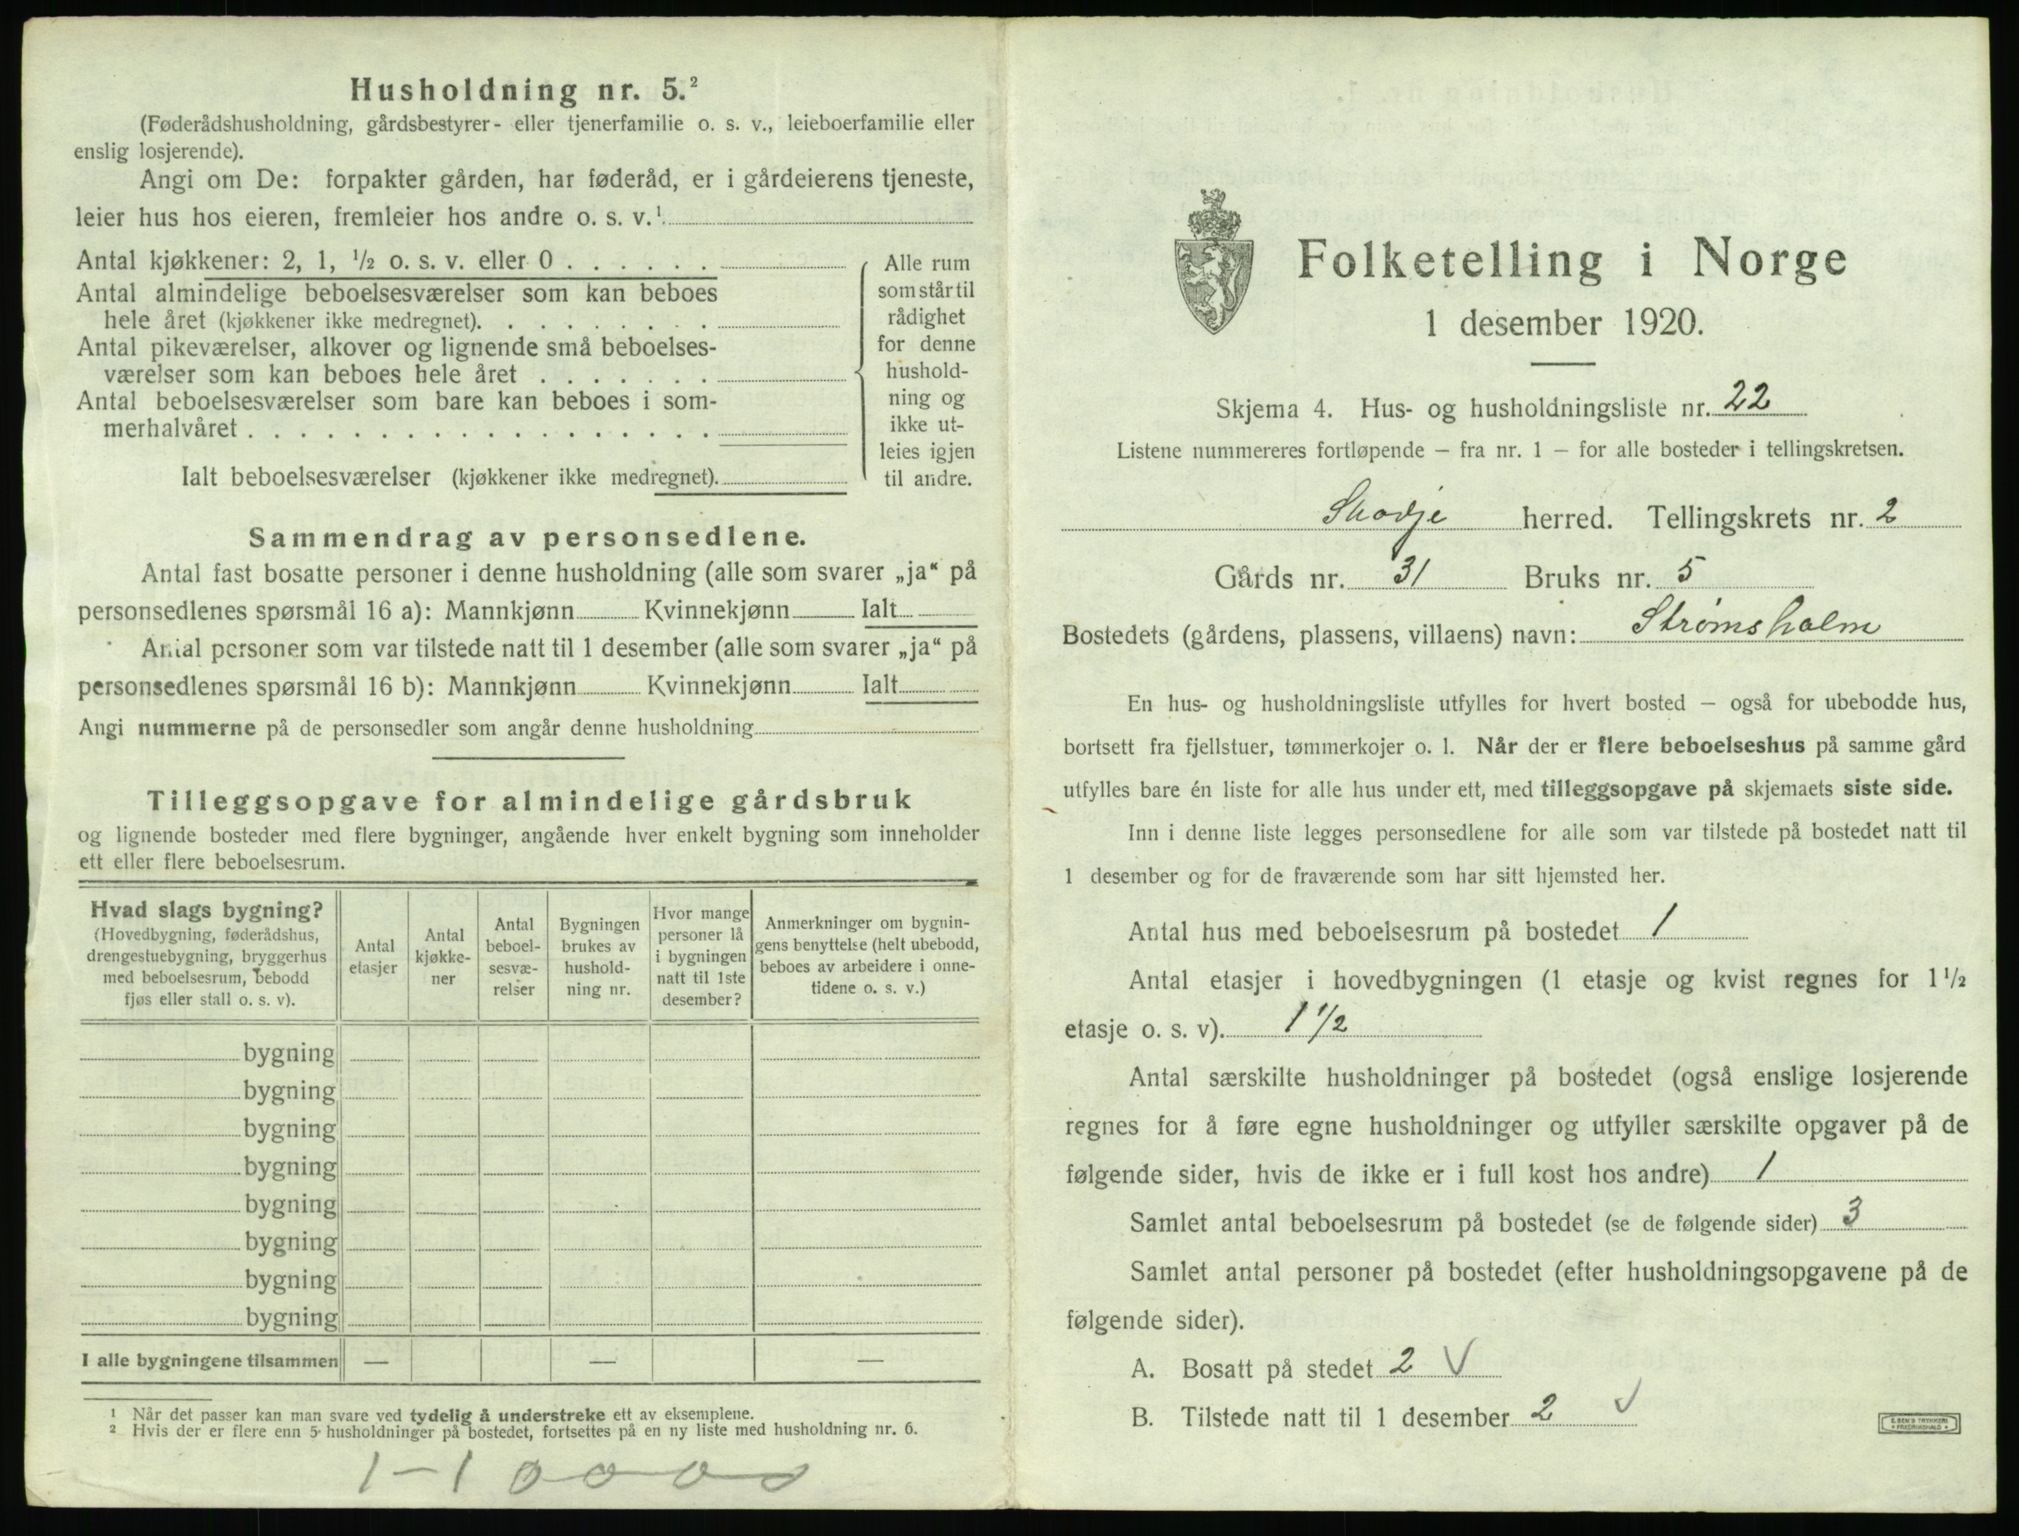 Husholdning nr. 5.²
(Føderådshusholdning, gårdsbestyrer- eller tjenerfamilie o. s. v., leieboerfamilie eller
enslig losjerende).
Angi om De: forpakter gården, har føderåd, er i gårdeierens tjeneste,
leier hus hos eieren, fremleier hos andre o. s. v.¹
Antal kjøkkener: 2, 1, ½ o. s. v. eller 0 . . . . . .
Antal almindelige beboelsesværelser som kan beboes
hele året (kjøkkener ikke medregnet). . . . . . . .
Antal pikeværelser, alkover og lignende små beboelses-
værelser som kan beboes hele året . . . . . . .
Antal beboelsesværelser som bare kan beboes i som-
merhalvåret . . . . . . . . . . . . . . . . . .
Ialt beboelsesværelser (kjøkkener ikke medregnet).
Alle rum
som står til
rådighet
for denne
hushold-
ning og
ikke ut-
leies igjen
til andre.
Sammendrag av personsedlene.
Antal fast bosatte personer i denne husholdning (alle som svarer „ja“ på
personsedlenes spørsmål 16 a): Mannkjønn Kvinnekjønn Ialt
Antal personer som var tilstede natt til 1 desember (alle som svarer „ja“ på
personsedlenes spørsmål 16 b): Mannkjønn Kvinnekjønn Ialt
Angi nummerne på de personsedler som angår denne husholdning
Tilleggsopgave for almindelige gårdsbruk
og lignende bosteder med flere bygninger, angående hver enkelt bygning som inneholder
ett eller flere beboelsesrum.
Hvad slags bygning?
(Hovedbygning, føderådshus,
drengestuebygning, bryggerhus
med beboelsesrum, bebodd
fjøs eller stall o. s. v).
Antal
etasjer
Antal
kjøkke-
ner
Antal
beboel-
sesvæ-
relser
Bygningen
brukes av
hushold-
ning nr.
Hvor mange
personer lå
i bygningen
natt til 1ste
desember?
Anmerkninger om bygnin-
gens benyttelse (helt ubebodd,
beboes av arbeidere i onne-
tidene o. s. v.)
bygning
bygning
bygning
bygning
bygning
bygning
bygning
bygning
I alle bygningene tilsammen — — —
¹ Når det passer kan man svare ved tydelig å understreke ett av eksemplene.
² Hvis der er flere enn 5 husholdninger på bostedet, fortsettes på en ny liste med husholdning nr. 6.
1-1 0000
Folketelling i Norge
1 desember 1920.
Skjema 4. Hus- og husholdningsliste nr. 22
Listene nummereres fortløpende – fra nr. 1 – for alle bosteder i tellingskretsen.
Skodje herred. Tellingskrets nr. 2
Gårds nr. 31 Bruks nr. 5
Bostedets (gårdens, plassens, villaens) navn: Strømsholm
En hus- og husholdningsliste utfylles for hvert bosted – også for ubebodde hus,
bortsett fra fjellstuer, tømmerkojer o. l. Når der er flere beboelseshus på samme gård
utfylles bare én liste for alle hus under ett, med tilleggsopgave på skjemaets siste side.
Inn i denne liste legges personsedlene for alle som var tilstede på bostedet natt til
1 desember og for de fraværende som har sitt hjemsted her.
Antal hus med beboelsesrum på bostedet 1
Antal etasjer i hovedbygningen (1 etasje og kvist regnes for 1 ½
etasje o. s. v). 1 ½
Antal særskilte husholdninger på bostedet (også enslige losjerende
regnes for å føre egne husholdninger og utfyller særskilte opgaver på de
følgende sider, hvis de ikke er i full kost hos andre) 1
Samlet antal beboelsesrum på bostedet (se de følgende sider) 3
Samlet antal personer på bostedet (efter husholdningsopgavene på de
følgende sider).
A. Bosatt på stedet 2 V
B. Tilstede natt til 1 desember 2 V